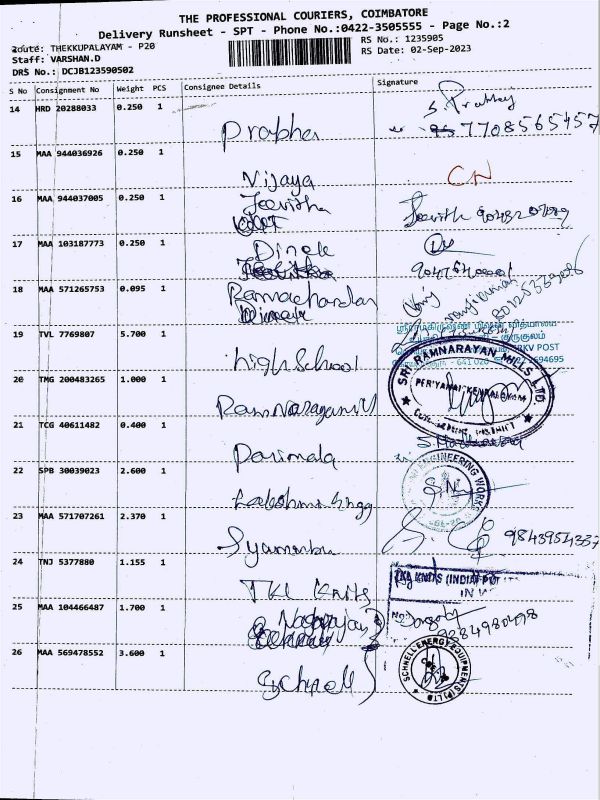 THE PROFESSIONAL COURIERS, COIMBATORE
Delivery Runsheet - SPT - Phone No.:0422-3505555 - Page No.:2
Route: THEKKUPALAYAM - P20
RS No.: 1235905
Staff: VARSHAN.D
RS Date: 02-Sep-2023
DRS No.: DCJB123590502
S No Consignment No Weight PCS Consignee Details Signature
14 HRD 20288033 0.250 1
S. Prabhey
Prabha
7708565457
15 MAA 944036926 0.250 1
Vijaya
CN
16 MAA 944037005 0.250 1
Jeevitha
17 MAA 103187773 0.250 1
Dinek
18 MAA 571265753 0.095 1
Ramachandan
19 TVL 7769807 5.700 1
ஸ்ரீராமகிருஷ்ண மிஷன் வித்யாலய
குருகுலம்
SRKV POST
641 020
high School
20 TMG 200483265 1.000 1
SRI RAMNARAYAN MILLS LTD.
PERIYANAICKENPALAYAM
DISTRICT
21 TCG 40611482 0.400 1
Parimala
22 SPB 30039023 2.600 1
ENGINEERING WORKS
23 MAA 571707261 2.370 1
Syamanbu
9843954337
24 TNJ 5377880 1.155 1
TKL Knits
KNITS (INDIA) PVT
25 MAA 104466487 1.700 1
Nagarajan
9384980498
26 MAA 569478552 3.600 1
Schnell
SCHNELL ENERGY EQUIPMENTS (P) LTD